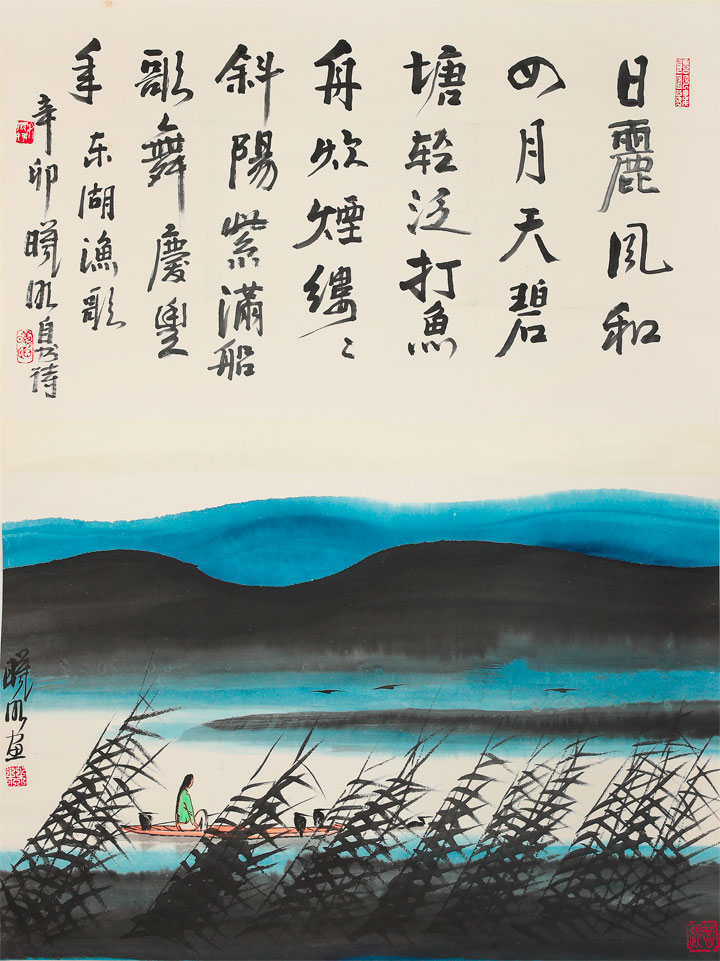 日麗风和
四月天碧
塘轻泛打魚
舟炊煙縷〻
斜陽紫滿船
歌舞慶豐
年 东湖漁歌
辛卯曉明自书詩
曉明画